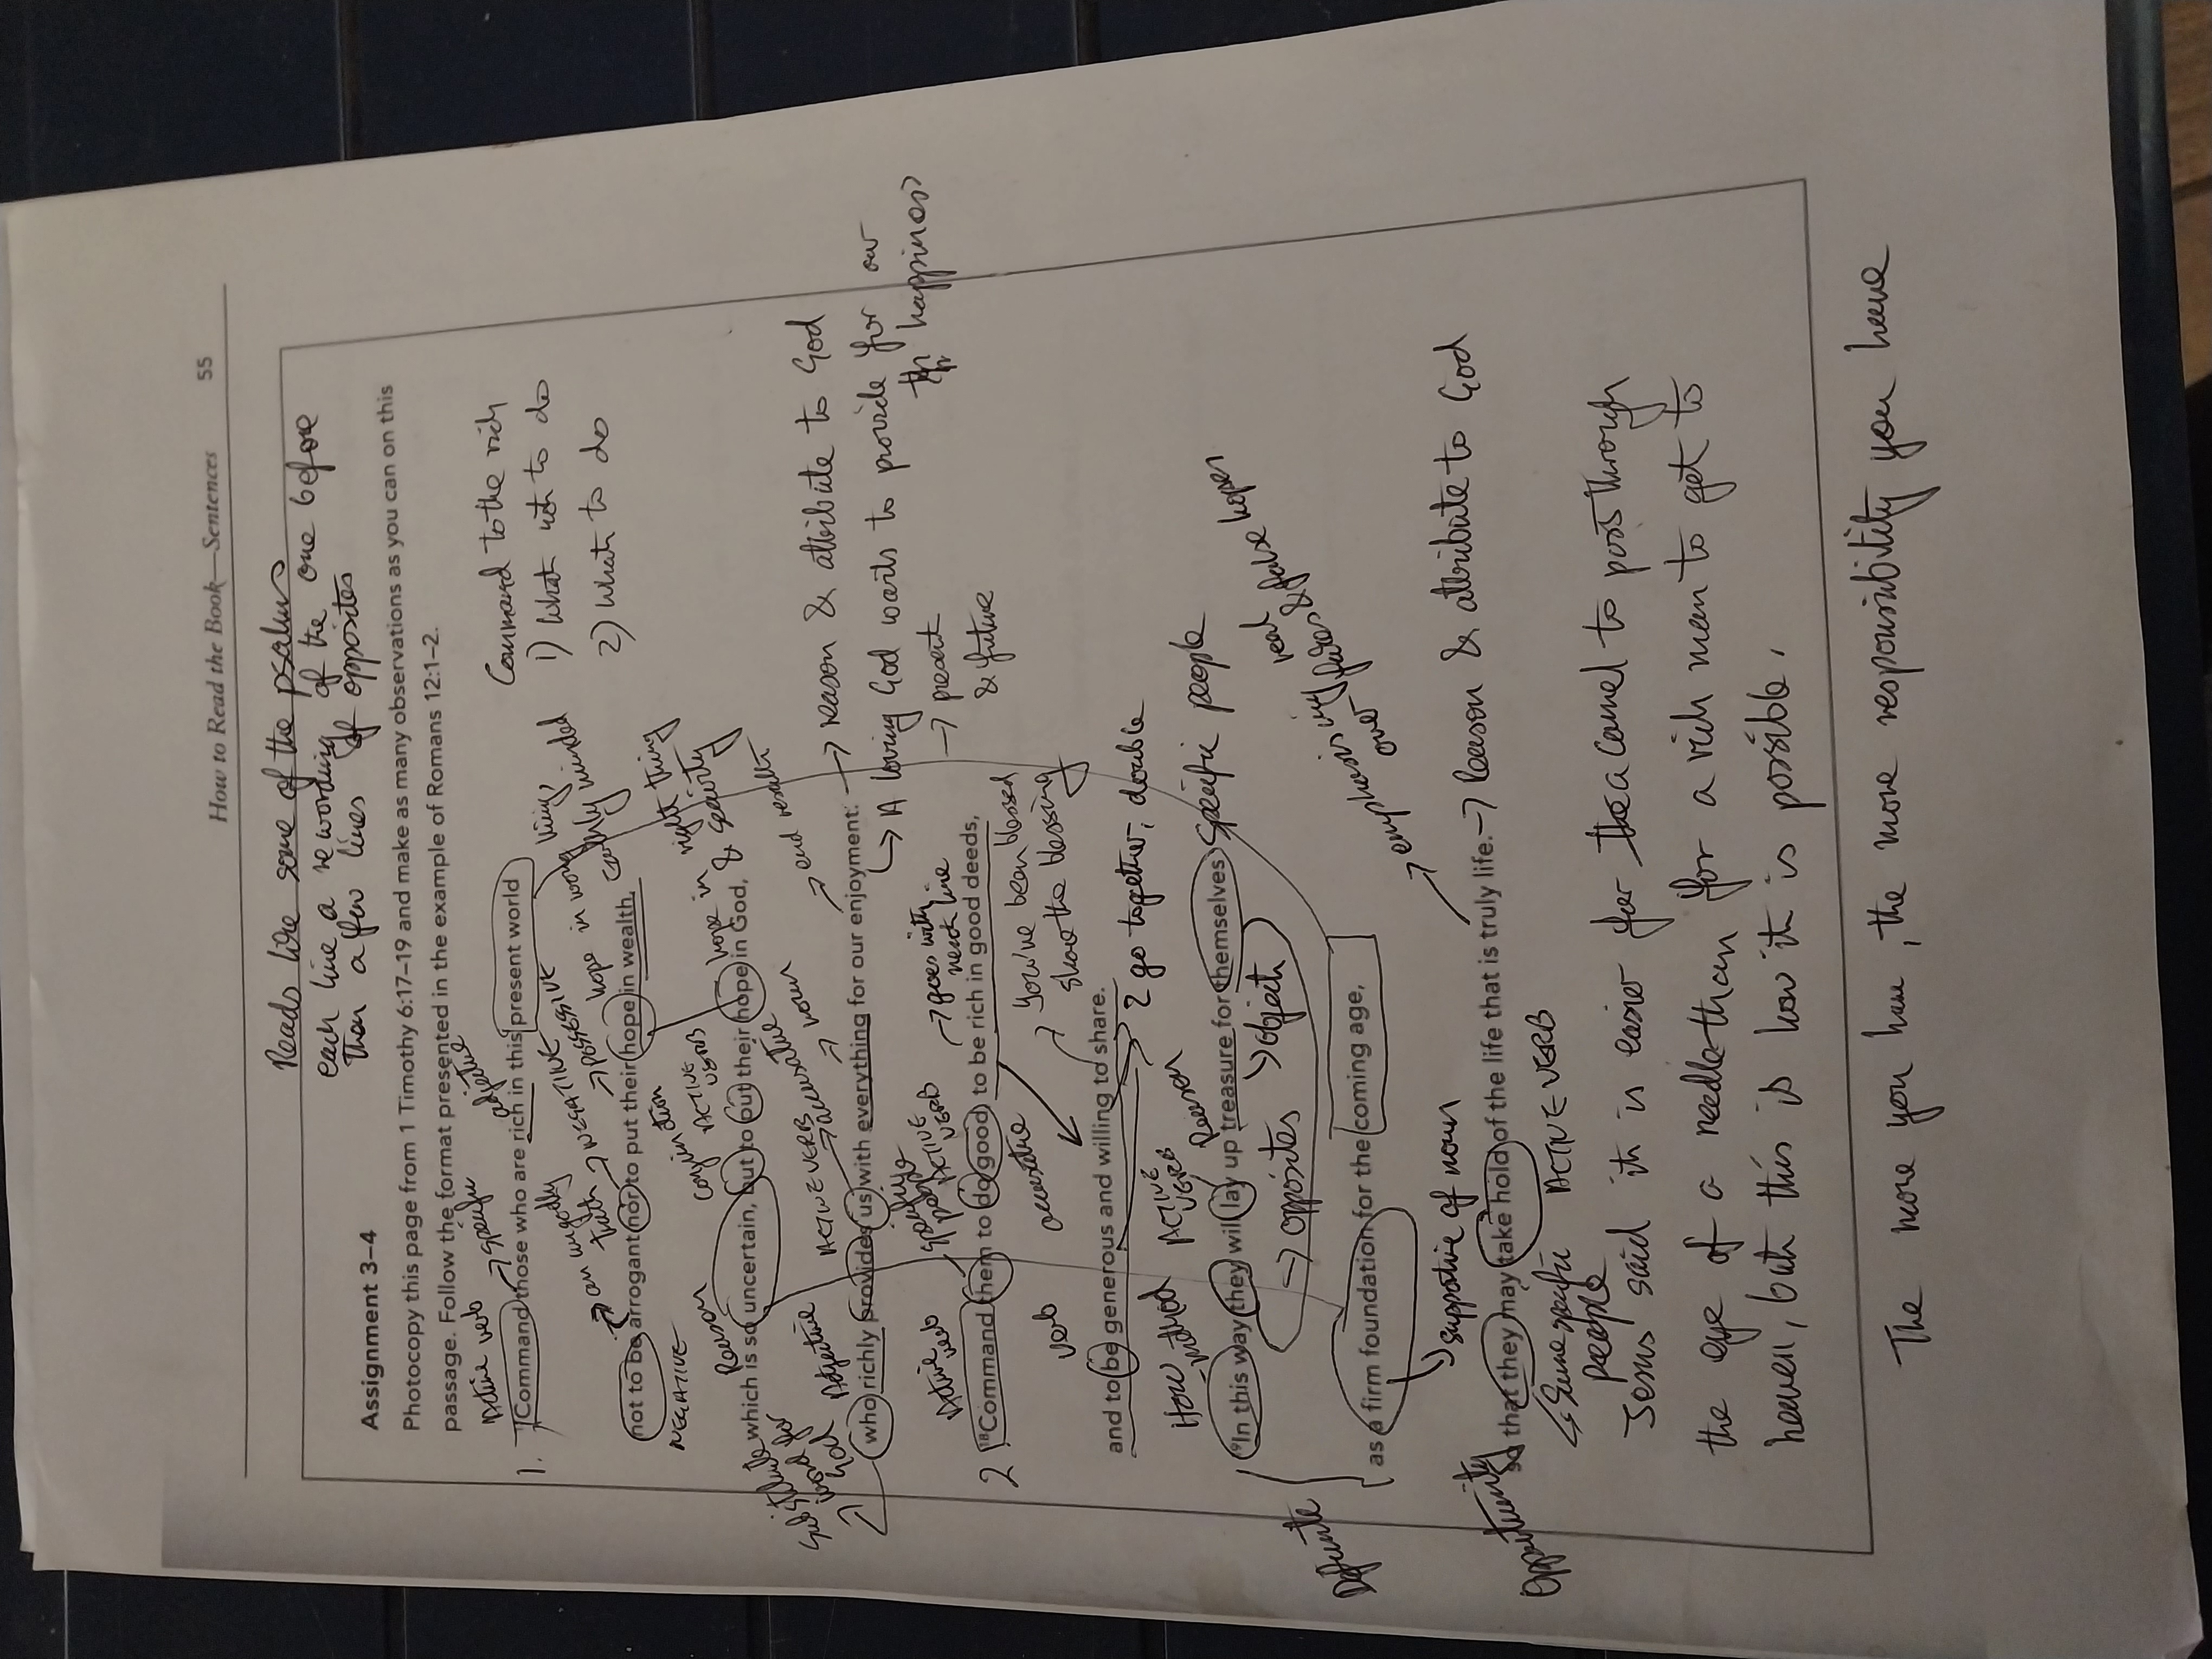 How to Read the Book—Sentences 55
Reads like some of the psalms
each line a rewording of the one before
than a few lines of opposites
Assignment 3–4
Photocopy this page from 1 Timothy 6:17–19 and make as many observations as you can on this
passage. Follow the format presented in the example of Romans 12:1–2.
Active verb → specific adjective
Command to the rich
1) What not to do
2) What to do
1. Command those who are rich in this present world
→ NEGATIVE → POSSESSIVE hope in wrong thing, earthly minded
not to be arrogant nor to put their hope in wealth,
NEGATIVE
Reason conjunction ACTIVE VERB hope in right thing & security
which is so uncertain, but to put their hope in God,
Substitute word for God
Adjective ACTIVE VERB → accusative → noun → end result
who richly provides us with everything for our enjoyment. → reason & attribute to God
→ A loving God waits to provide for our
happiness
→ present
& future
Active verb specific people ACTIVE VERB → goes with next line
2 ¹⁸Command them to do good, to be rich in good deeds,
verb accusative → You've been blessed
share the blessing
and to be generous and willing to share.
2 go together, double
How method ACTIVE VERB Reason
¹⁹In this way they will lay up treasure for themselves Specific people
→ opposites → object
Definite
as a firm foundation for the coming age,
→ supportive of noun
→ emphasis over real & false hopes
Opportunity
so that they may take hold of the life that is truly life. → Reason & attribute to God
Same specific people
ACTIVE VERB
Jesus said it is easier for a camel to pass through
the eye of a needle than for a rich man to get to
heaven, but this is how it is possible.
The more you have, the more responsibility you have